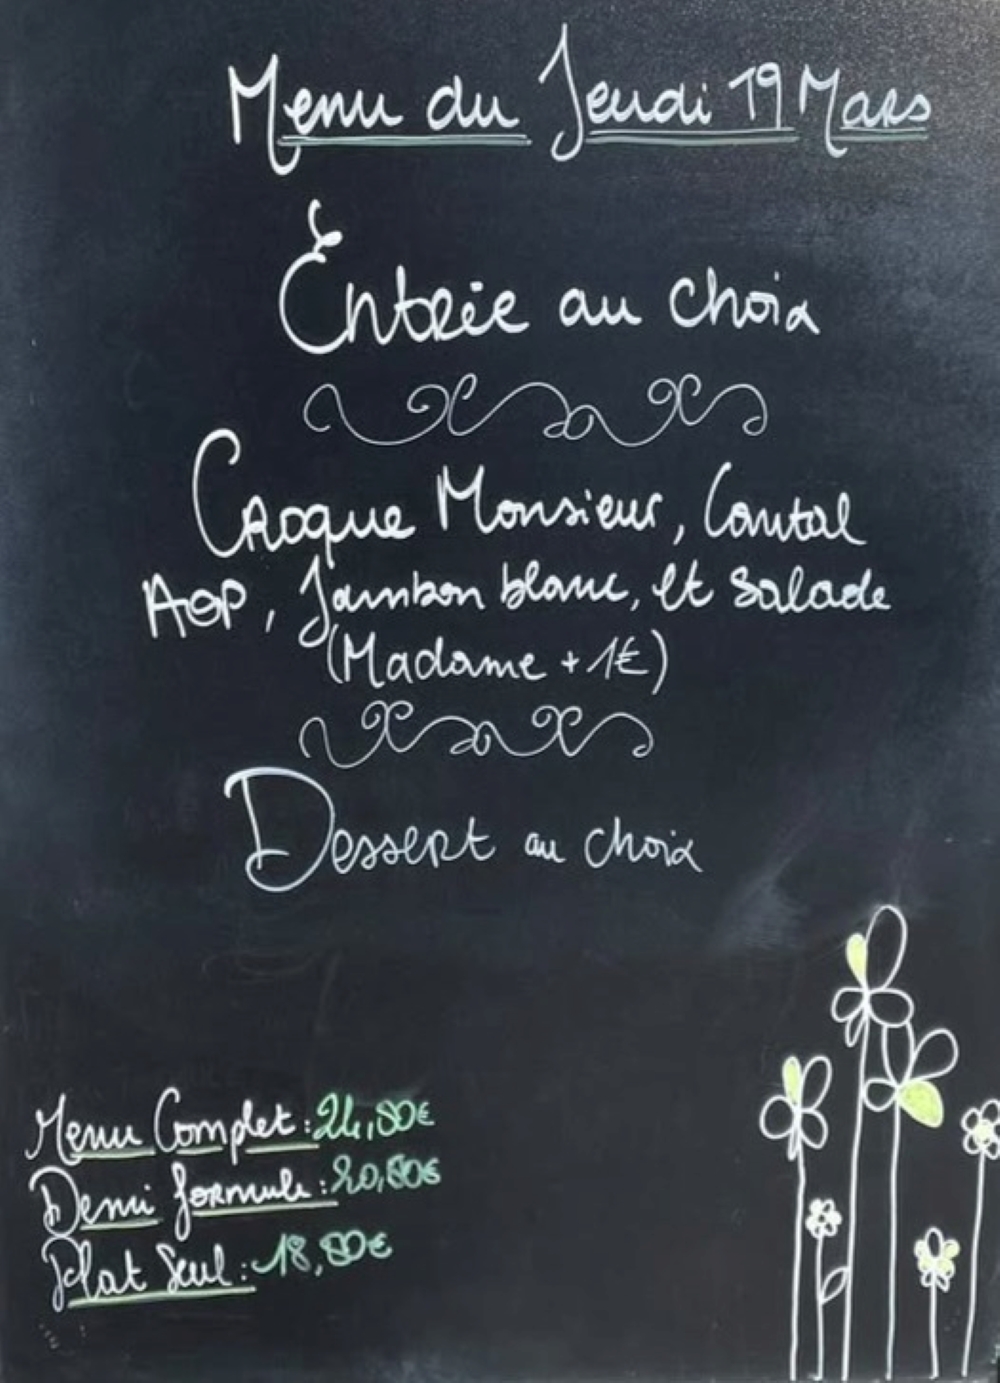 Menu du Jeudi 19 Mars
Entrée au choix
Croque Monsieur, Cantal
AOP, Jambon blanc, et Salade
(Madame + 1€)
Dessert au choix
Menu Complet : 24,80€
Demi formule : 20,80€
Plat Seul : 18,80€